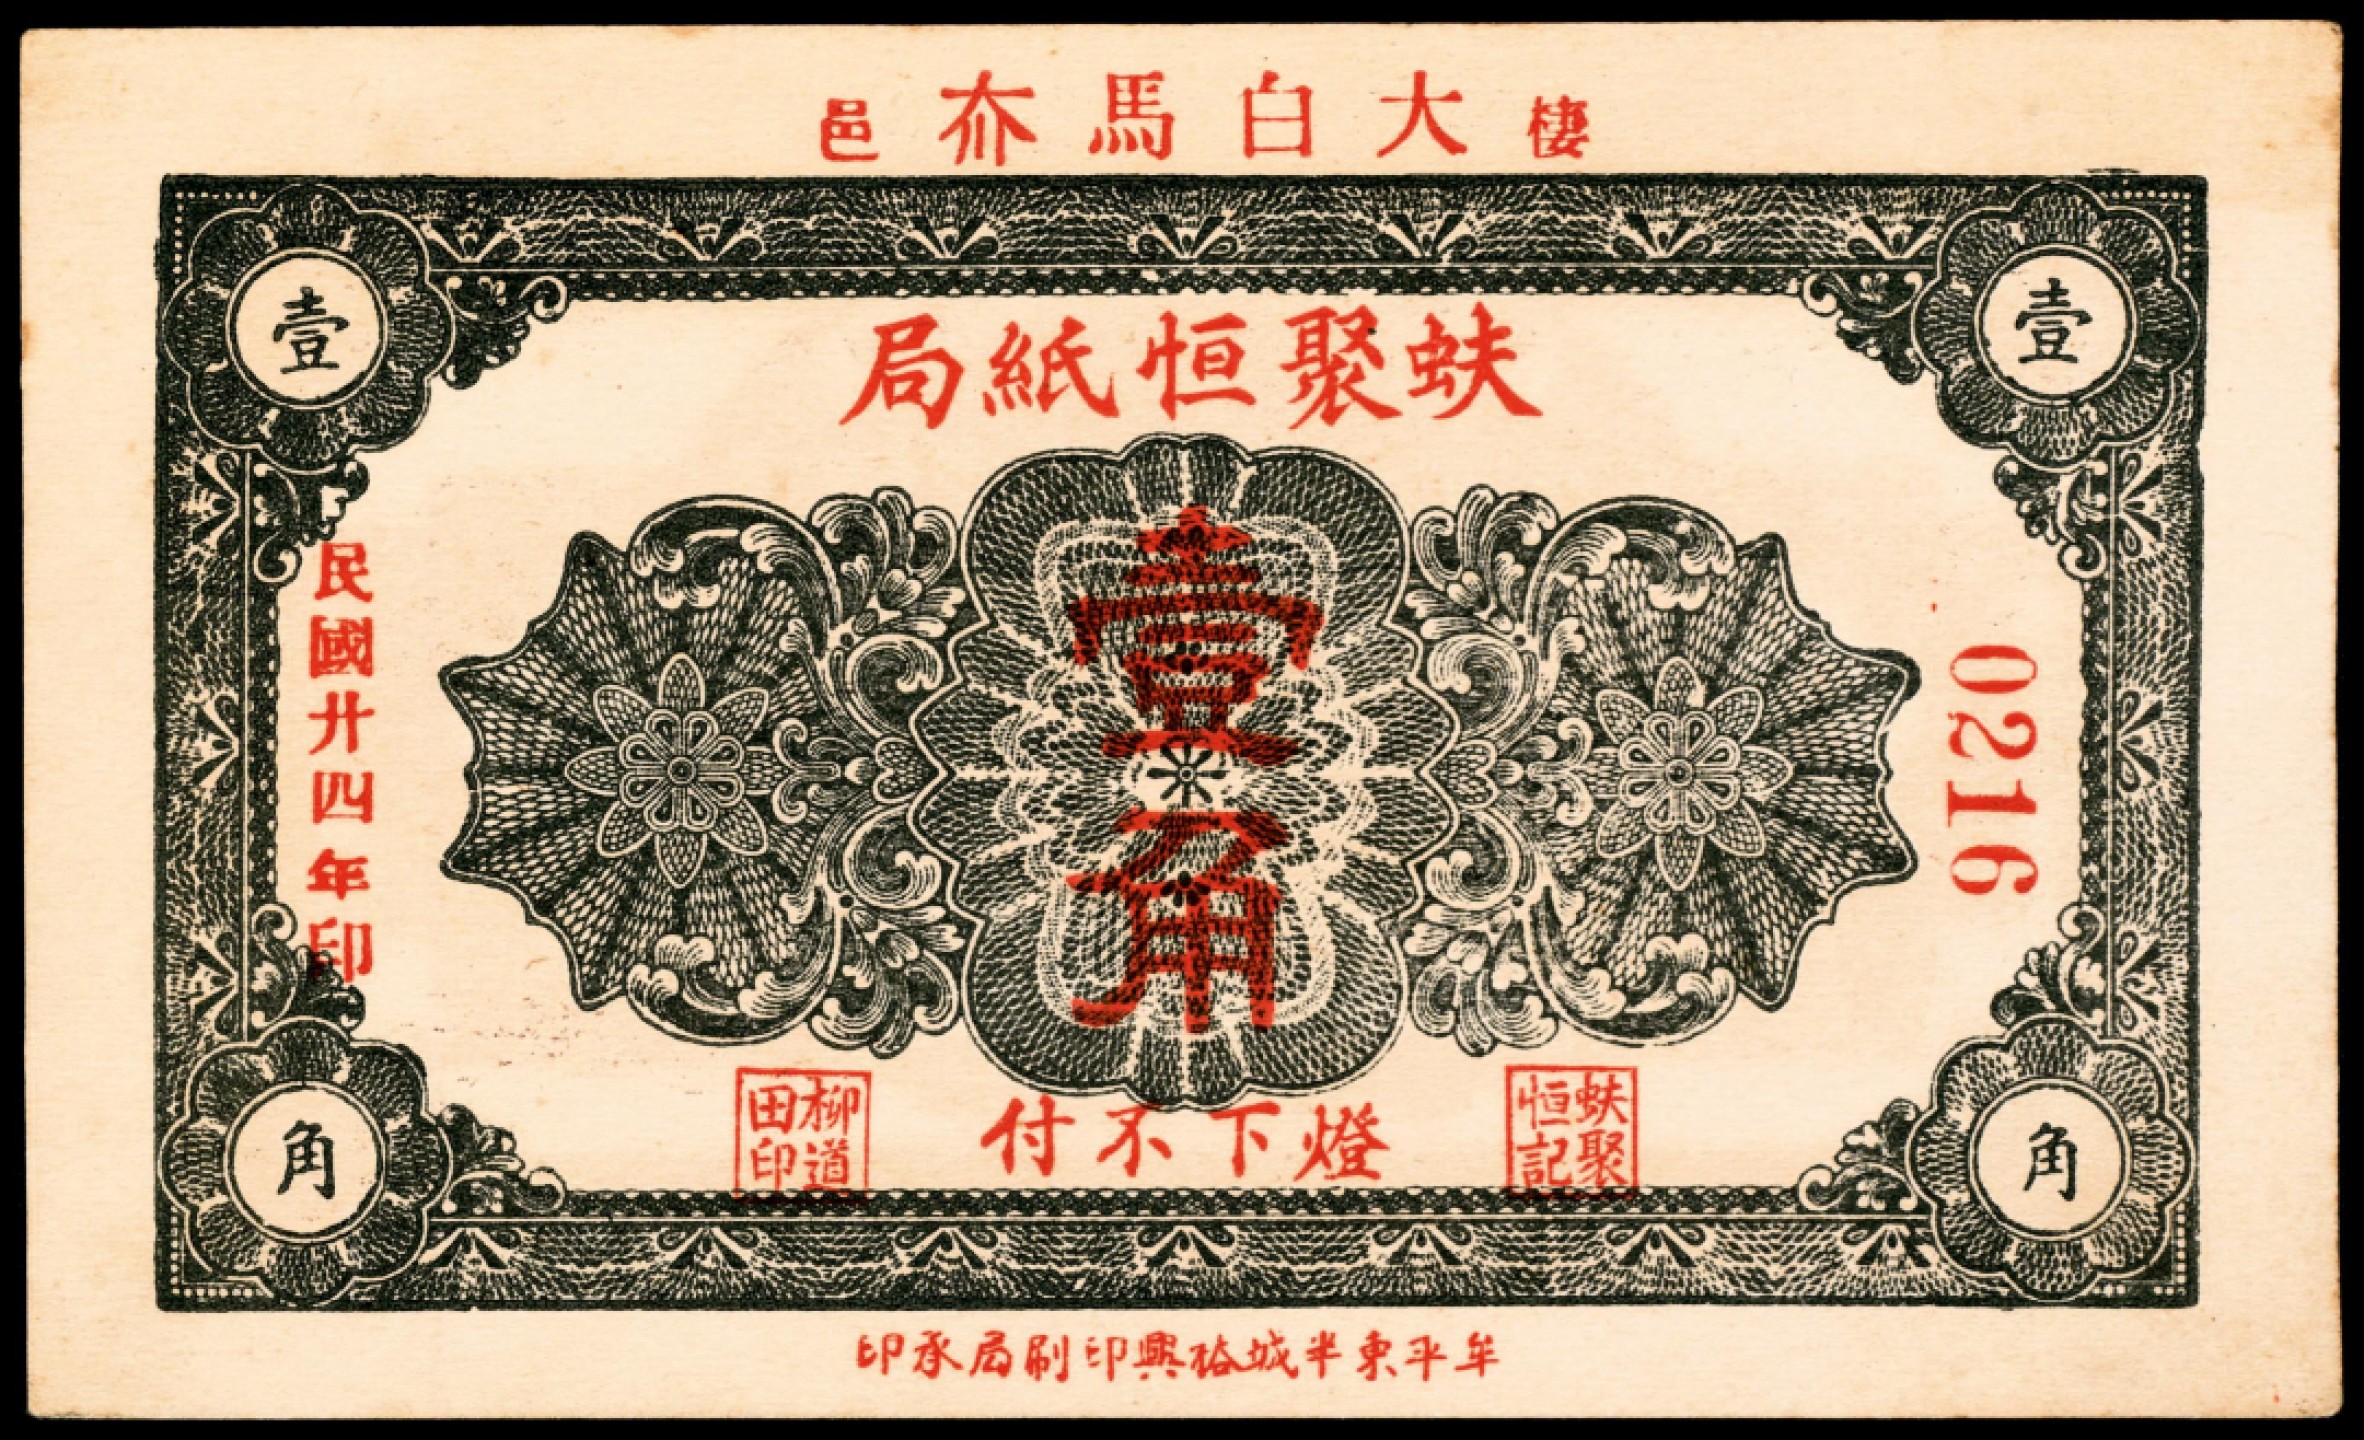 棲大白馬夼邑
壹
壹
蚨聚恒紙局
0216
壹角
民國廿四年印
蚨聚恒記
燈下不付
柳道田印
角
角
牟平東半城裕興印刷局承印